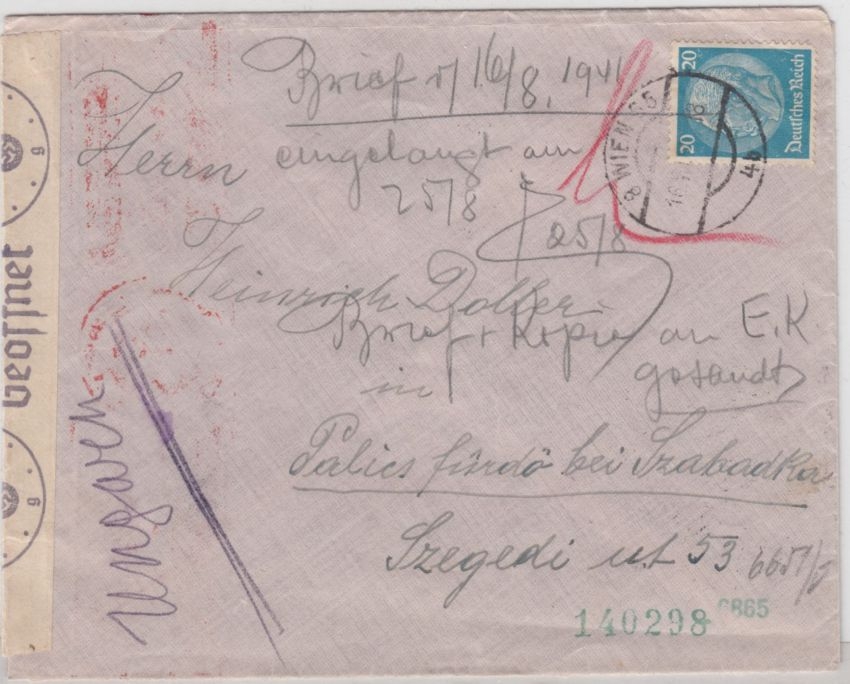 Brief v/ 16/8, 1941
20
20
Deutsches Reich
WIEN
4b
Herrn
eingelangt am
25/8
25/8
Heinrich
Brief + Kopie an E.K
gesandt
in
Palics fürdö bei Szabadka
Szegedi ut 53
Geöffnet
Ungarn
140298